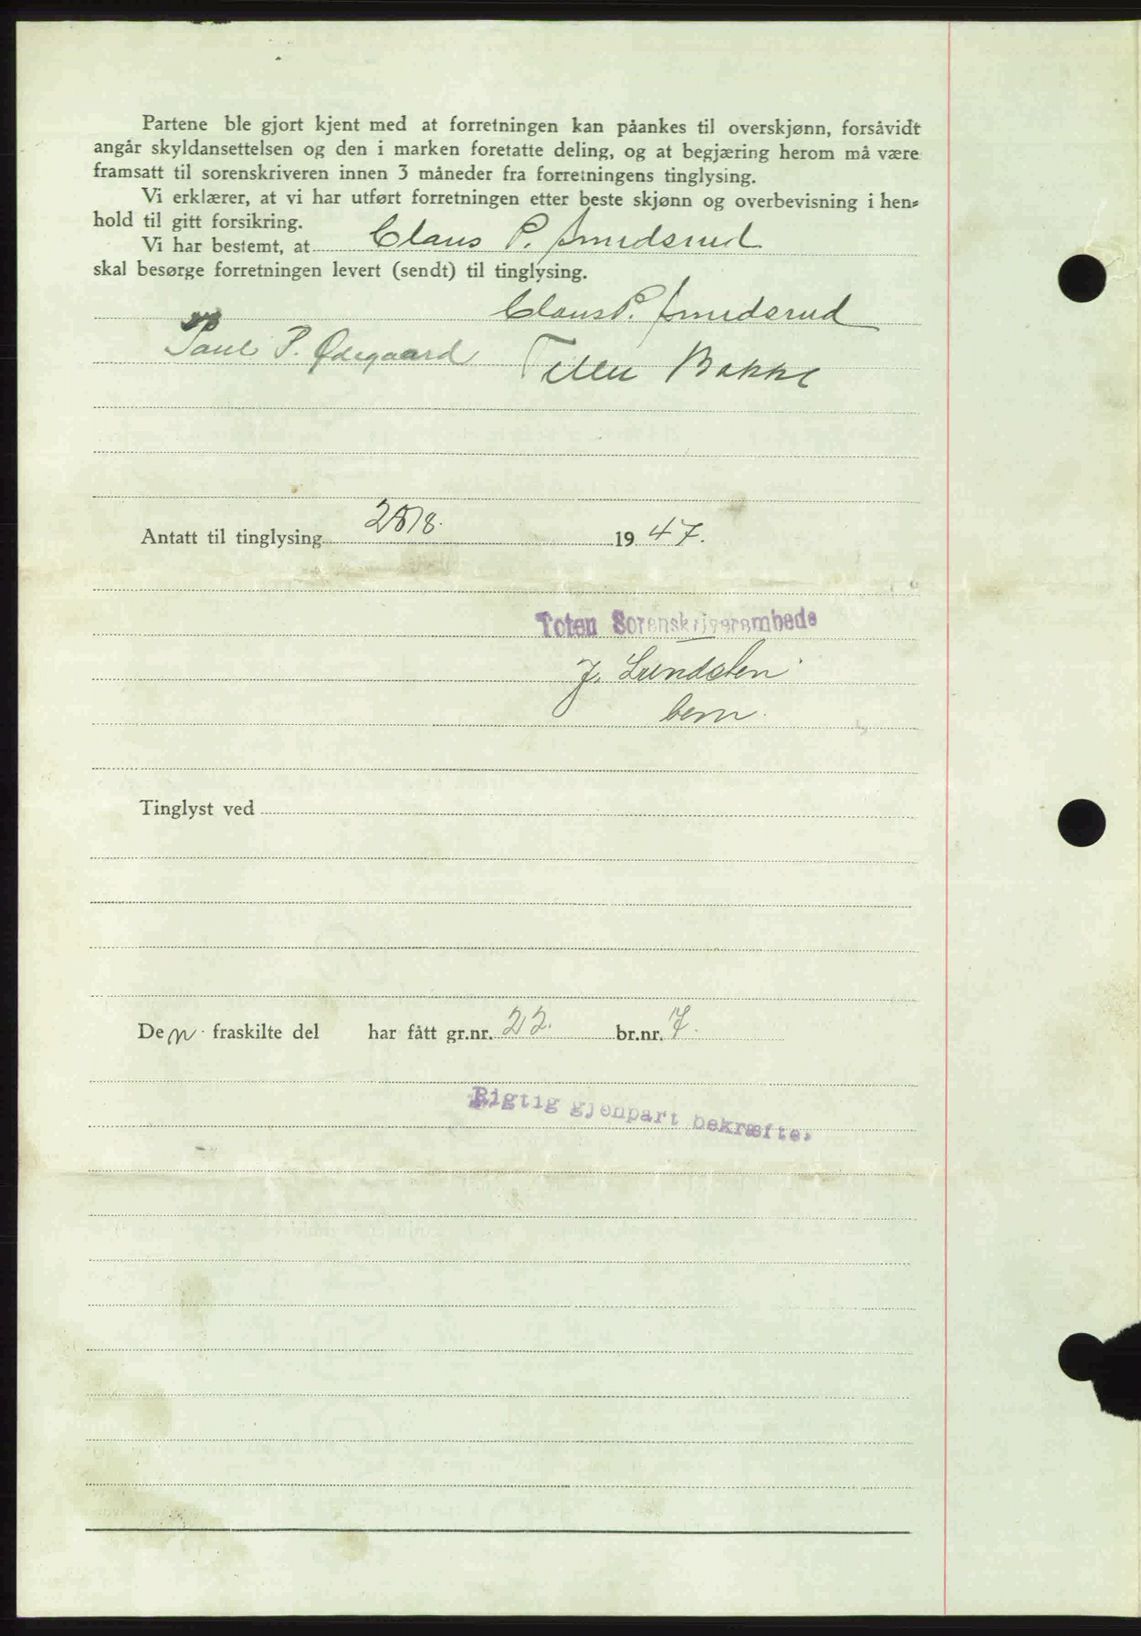 Partene ble gjort kjent med at forretningen kan påankes til overskjønn, forsåvidt
angår skyldansettelsen og den i marken foretatte deling, og at begjæring herom må være
framsatt til sorenskriveren innen 3 måneder fra forretningens tinglysing.
Vi erklærer, at vi har utført forretningen etter beste skjønn og overbevisning i hen-
hold til gitt forsikring.
Vi har bestemt, at Claus P. Smedsrud
skal besørge forretningen levert (sendt) til tinglysing.
Claus P. Smedsrud
Paul P. Ødegaard
Bakke
Antatt til tinglysing 19 47.
Toten Sorenskriverembede
J. Lundsten
Tinglyst ved
Den fraskilte del har fått gr.nr. 22. br.nr. 7.
Rigtig gjenpart bekræftes